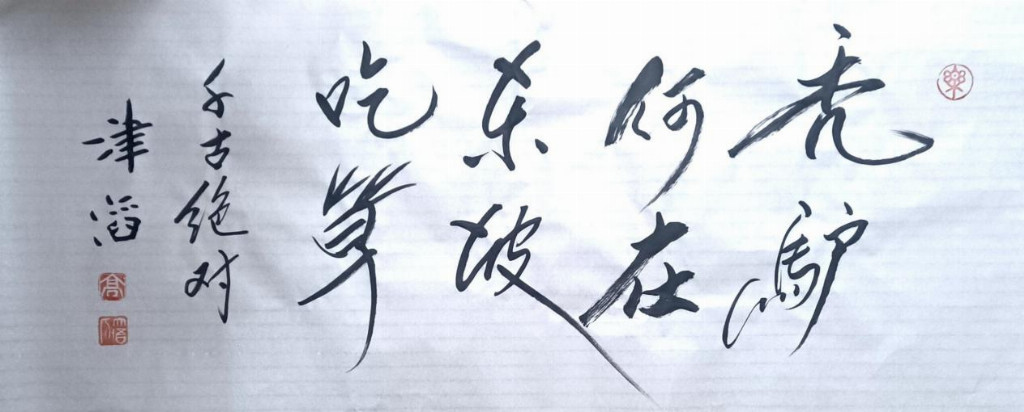 樂
秃馿
何在
东坡
吃草
千古绝对
津滔
高